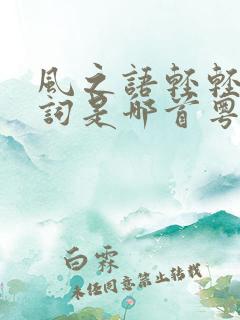 風之語輕輕
詞是哪首粵
白霖
未经同意禁止转载